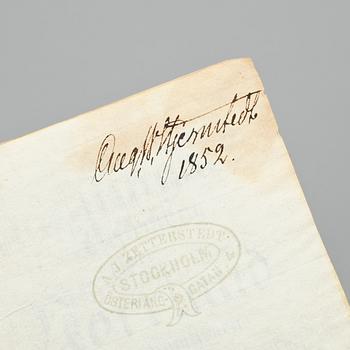 Aug. W. Hjernstedt
1852.
A. J. ZETTERSTEDT.
STOCKHOLM
ÖSTERLÅNG- GATAN. 4